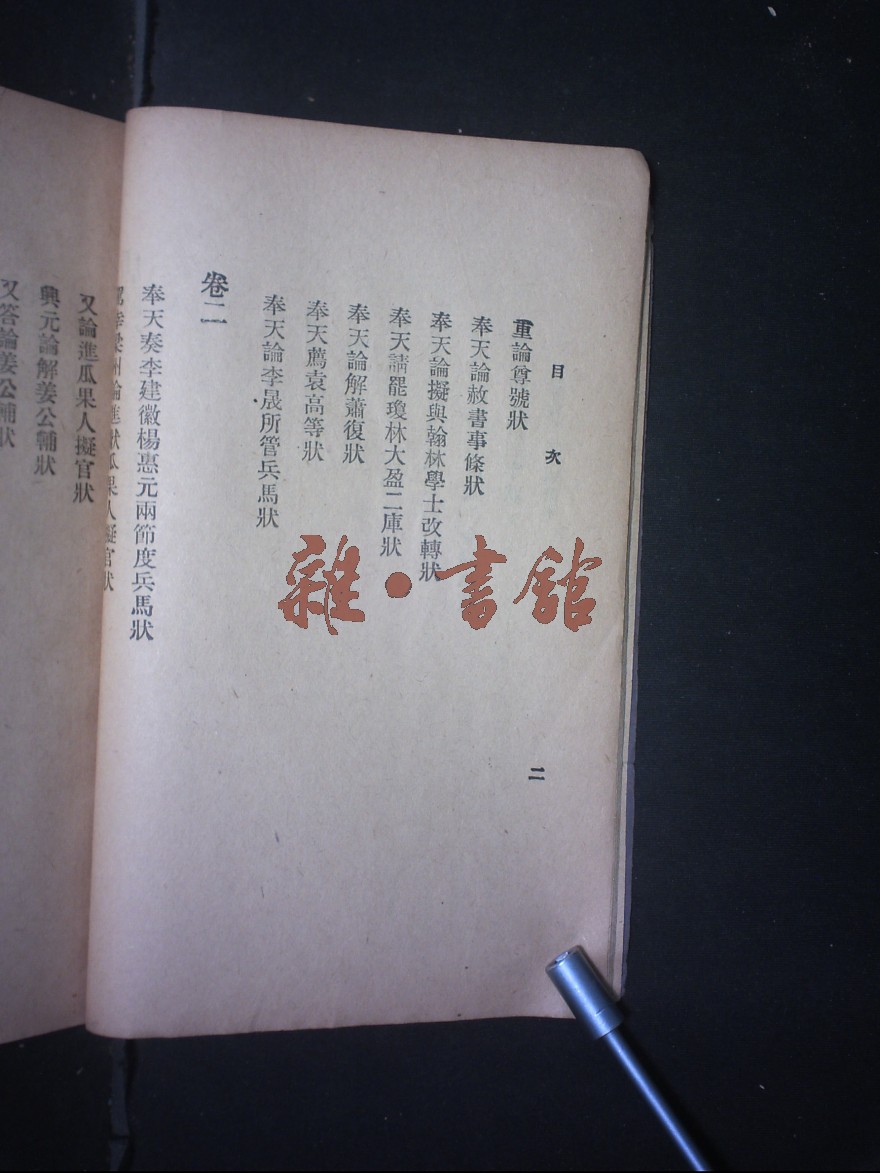 目次
二
重論尊號狀
奉天論赦書事條狀
奉天論擬與翰林學士改轉狀
奉天請罷瓊林大盈二庫狀
奉天論解蕭復狀
奉天薦袁高等狀
奉天論李晟所管兵馬狀
卷二
奉天奏李建徽楊惠元兩節度兵馬狀
駕幸梁州論進獻瓜果人擬官狀
又論進瓜果人擬官狀
興元論解姜公輔狀
又答論姜公輔狀
雜·書館